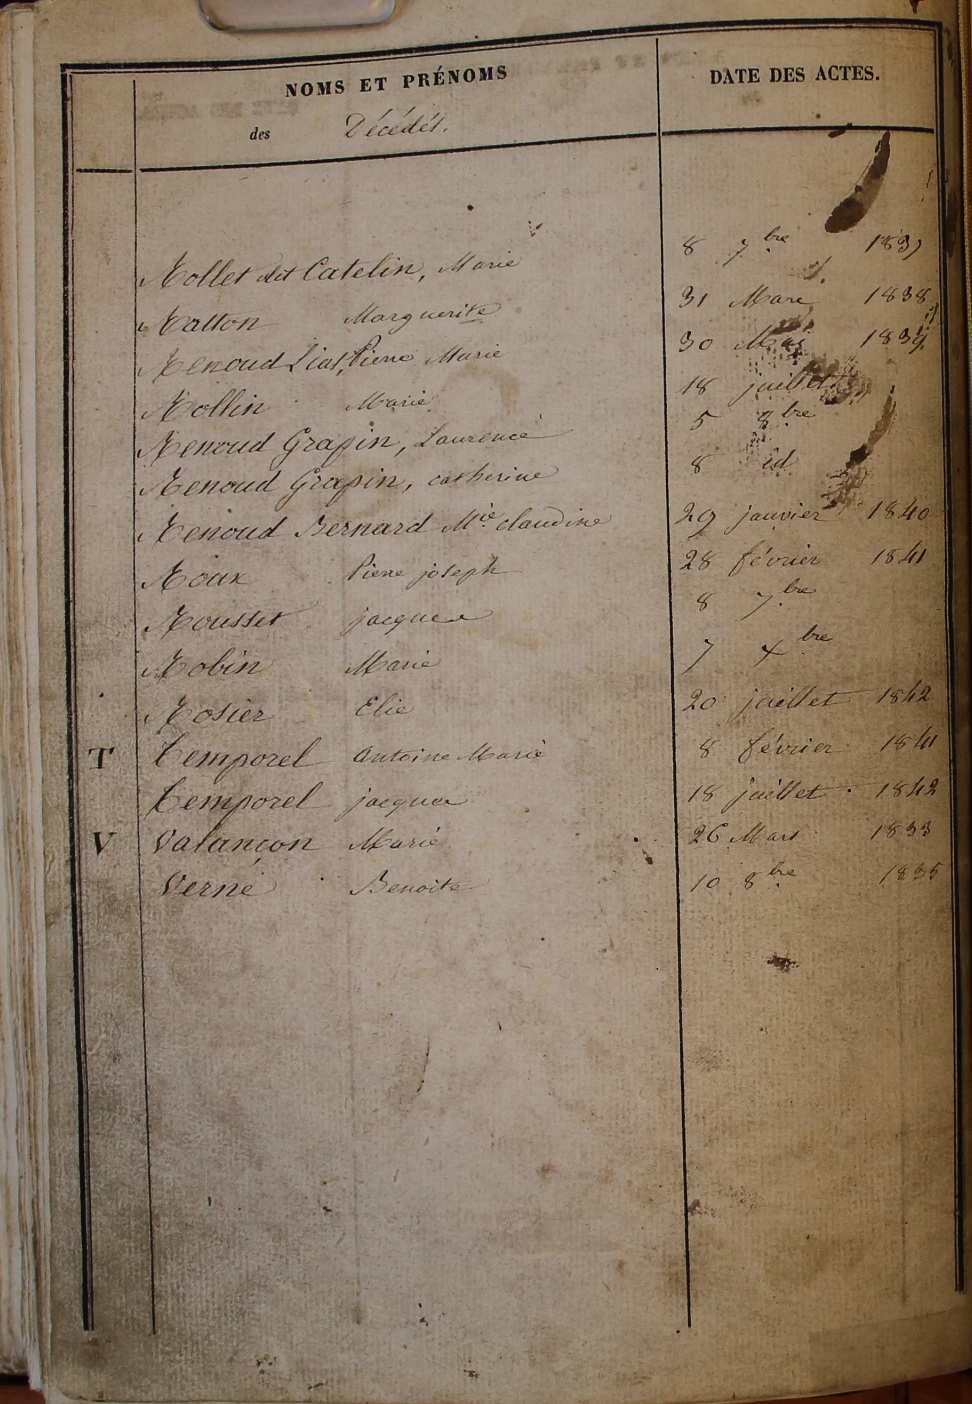 NOMS ET PRÉNOMS DATE DES ACTES.
des Décédés.
Rollet dit Catelin, Marie 8 7bre 1837
Ratton Marguerite 31 Mars 1838
Renoud Liat, Pierre Marie 30 Mai 1839
Rollin Marie 18 juillet
Renoud Grapin, Laurence 5 8bre
Renoud Grapin, catherine 8 id
Renoud Bernard Mie claudine 29 janvier 1840
Roux Pierre joseph 28 février 1841
Rousset jacques 8 7bre
Robin Marie 7 xbre
Rosier Elie 20 juillet 1842
T Temporel Antoine Marie 8 février 1841
Temporel jacques 18 juillet 1842
V Valançon Marie 26 Mars 1833
Verne Benoite 10 8bre 1835